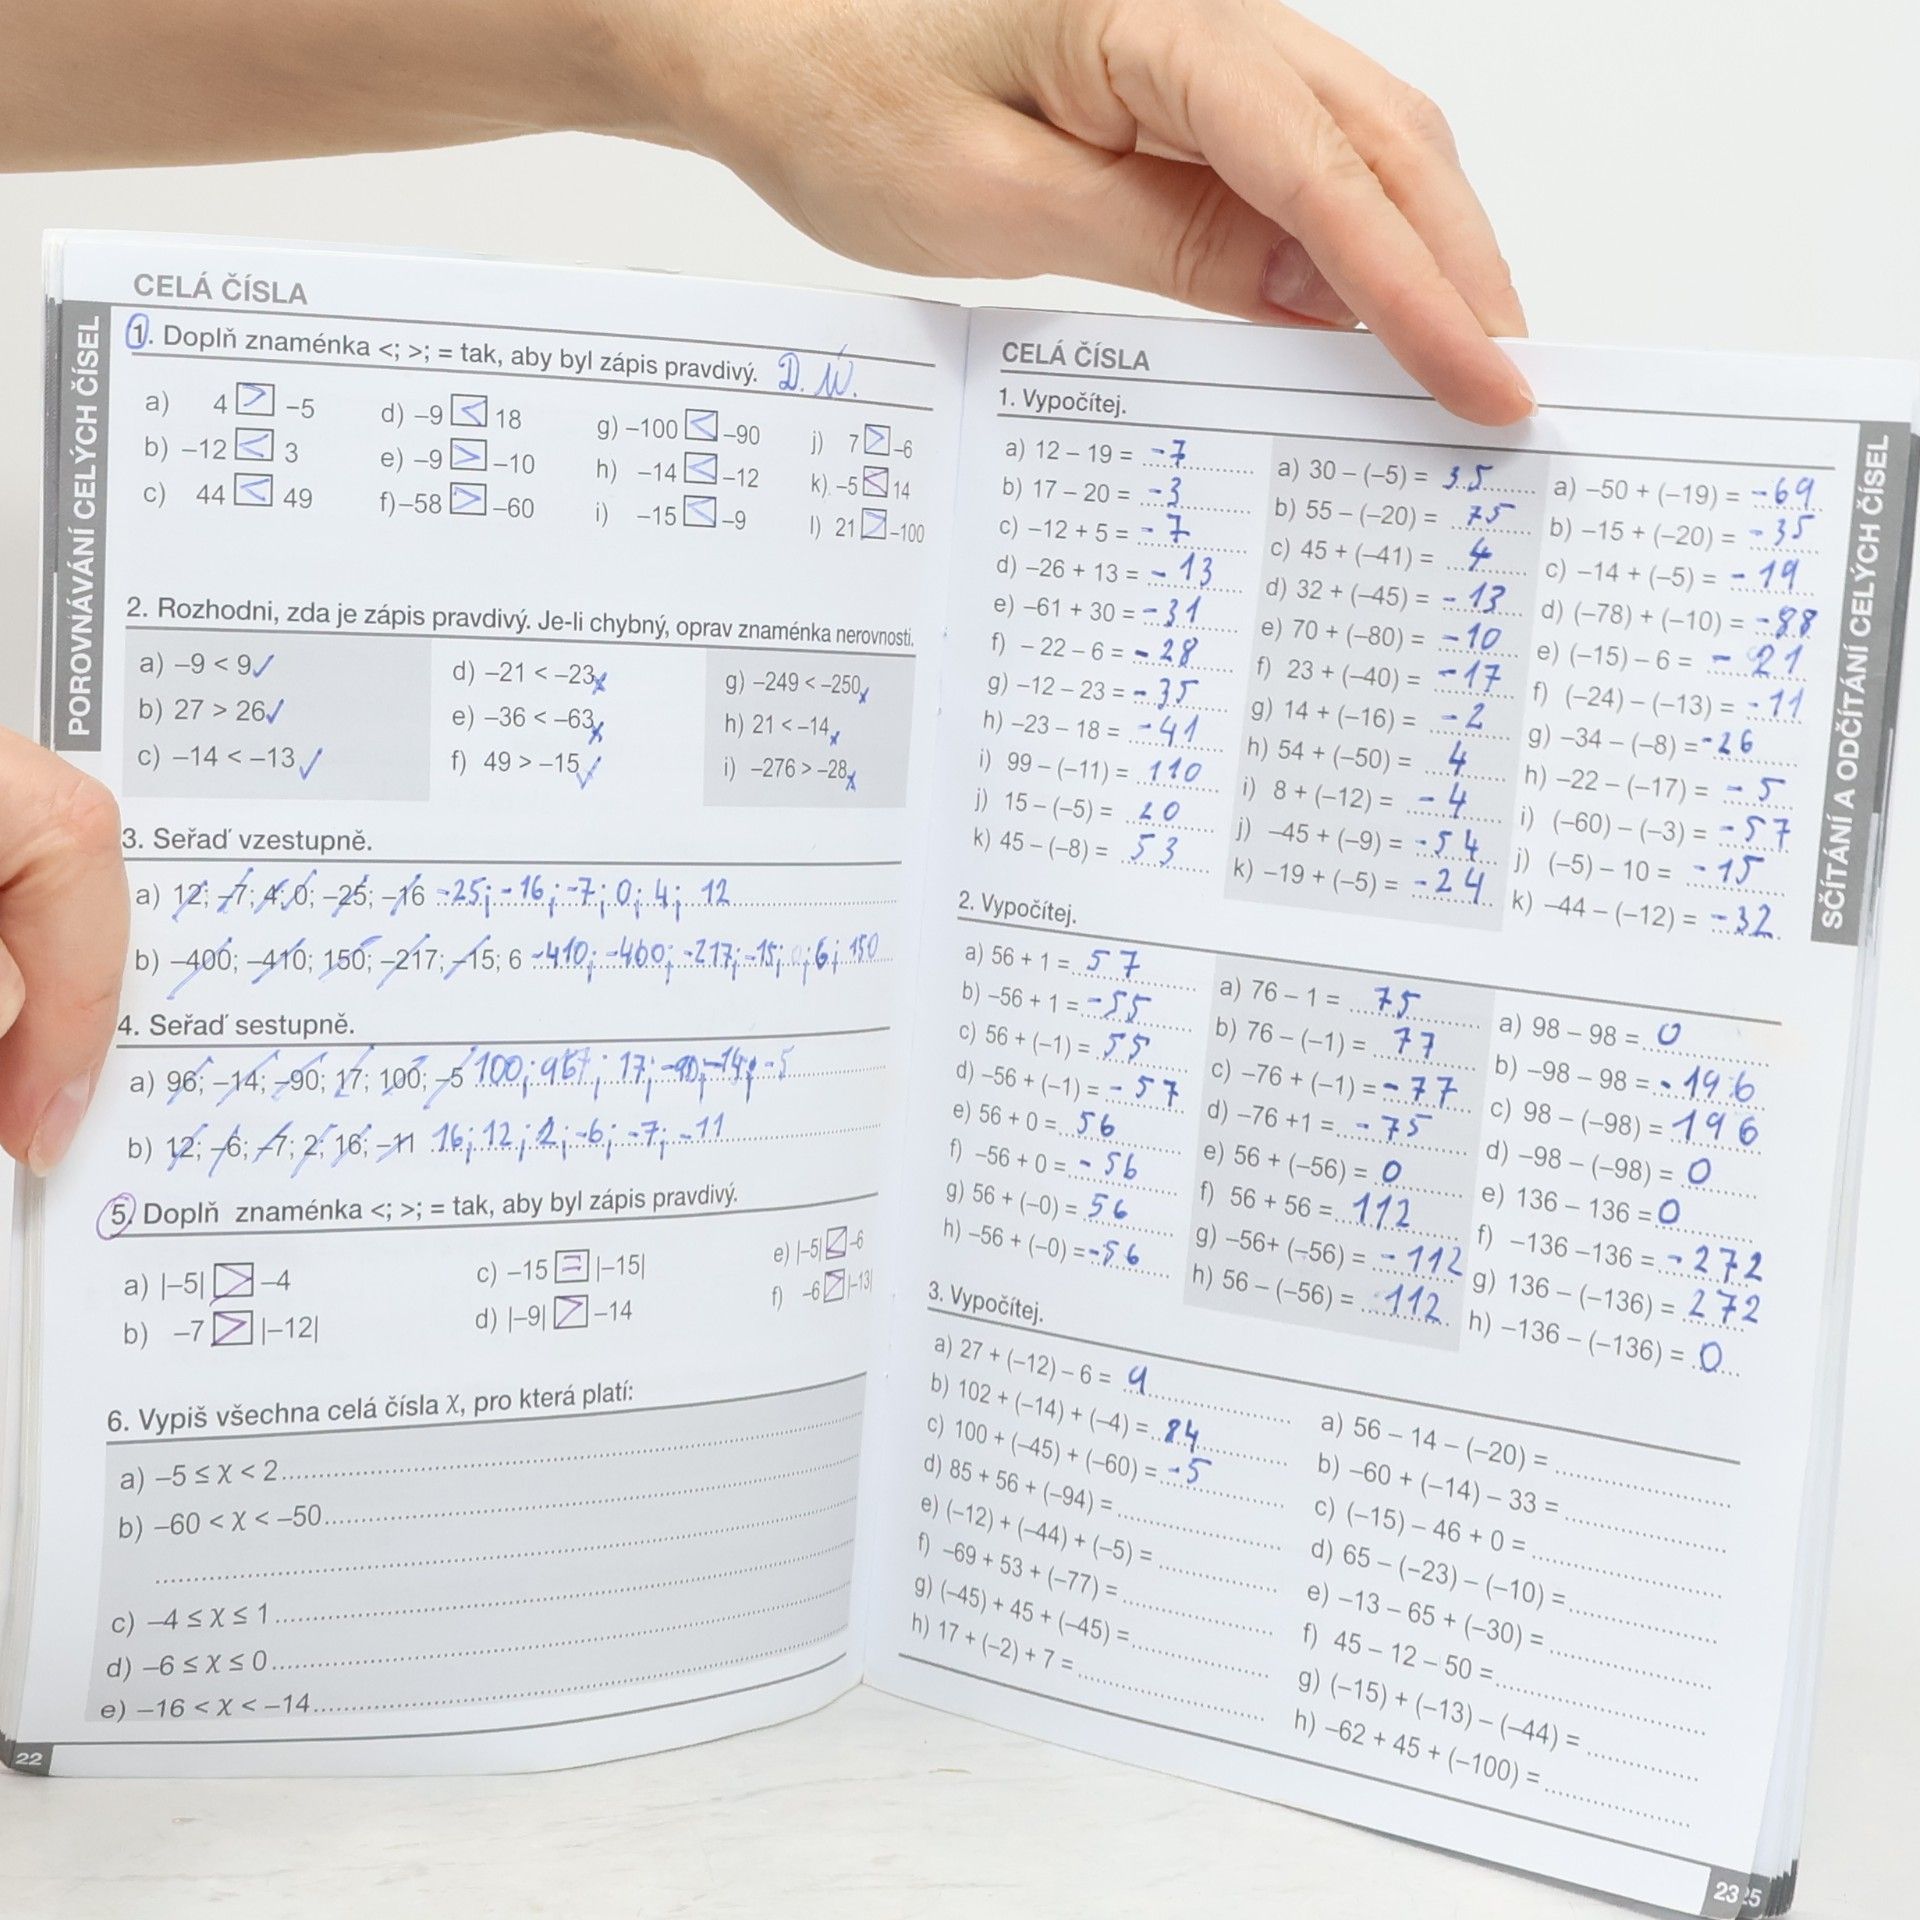 CELÁ ČÍSLA
POROVNÁVÁNÍ CELÝCH ČÍSEL
1. Doplň znaménka <; >; = tak, aby byl zápis pravdivý. D. Ú.
a) 4 > –5
b) –12 < 3
c) 44 < 49
d) –9 < 18
e) –9 > –10
f) –58 > –60
g) –100 < –90
h) –14 < –12
i) –15 < –9
j) 7 > –6
k) –5 < 14
l) 21 > –100
2. Rozhodni, zda je zápis pravdivý. Je-li chybný, oprav znaménka nerovnosti.
a) –9 < 9 ✓
b) 27 > 26 ✓
c) –14 < –13 ✓
d) –21 < –23 x
e) –36 < –63 x
f) 49 > –15 ✓
g) –249 < –250 x
h) 21 < –14 x
i) –276 > –28 x
3. Seřaď vzestupně.
a) 12; –7; 4; 0; –25; –16 -25; -16; -7; 0; 4; 12
b) –400; –410; 150; –217; –15; 6 -410; -400; -217; -15; 6; 150
4. Seřaď sestupně.
a) 96; –14; –90; 17; 100; –5 100; 17; -90; -14; -5
b) 12; –6; –7; 2; 16; –11 16; 12; 2; -6; -7; -11
5. Doplň znaménka <; >; = tak, aby byl zápis pravdivý.
a) |–5| > –4
b) –7 > |–12|
c) –15 = |–15|
d) |–9| > –14
e) |–5| < –6
f) –6 > |–13|
6. Vypiš všechna celá čísla x, pro která platí:
a) –5 ≤ x < 2
b) –60 < x < –50
c) –4 ≤ x ≤ 1
d) –6 ≤ x ≤ 0
e) –16 < x < –14
22
CELÁ ČÍSLA
SČÍTÁNÍ A ODČÍTÁNÍ CELÝCH ČÍSEL
1. Vypočítej.
a) 12 – 19 = -7
b) 17 – 20 = -3
c) –12 + 5 = -7
d) –26 + 13 = -13
e) –61 + 30 = -31
f) – 22 – 6 = -28
g) –12 – 23 = -35
h) –23 – 18 = -41
i) 99 – (–11) = 110
j) 15 – (–5) = 20
k) 45 – (–8) = 53
a) 30 – (–5) = 35
b) 55 – (–20) = 75
c) 45 + (–41) = 4
d) 32 + (–45) = -13
e) 70 + (–80) = -10
f) 23 + (–40) = -17
g) 14 + (–16) = -2
h) 54 + (–50) = 4
i) 8 + (–12) = -4
j) –45 + (–9) = -54
k) –19 + (–5) = -24
a) –50 + (–19) = -69
b) –15 + (–20) = -35
c) –14 + (–5) = -19
d) (–78) + (–10) = -88
e) (–15) – 6 = -21
f) (–24) – (–13) = -11
g) –34 – (–8) = -26
h) –22 – (–17) = -5
i) (–60) – (–3) = -57
j) (–5) – 10 = -15
k) –44 – (–12) = -32
2. Vypočítej.
a) 56 + 1 = 57
b) –56 + 1 = -55
c) 56 + (–1) = 55
d) –56 + (–1) = -57
e) 56 + 0 = 56
f) –56 + 0 = -56
g) 56 + (–0) = 56
h) –56 + (–0) = -56
a) 76 – 1 = 75
b) 76 – (–1) = 77
c) –76 + (–1) = -77
d) –76 +1 = -75
e) 56 + (–56) = 0
f) 56 + 56 = 112
g) –56+ (–56) = -112
h) 56 – (–56) = 112
a) 98 – 98 = 0
b) –98 – 98 = -196
c) 98 – (–98) = 196
d) –98 – (–98) = 0
e) 136 – 136 = 0
f) –136 –136 = -272
g) 136 – (–136) = 272
h) –136 – (–136) = 0
3. Vypočítej.
a) 27 + (–12) – 6 = 9
b) 102 + (–14) + (–4) = 84
c) 100 + (–45) + (–60) = -5
d) 85 + 56 + (–94) =
e) (–12) + (–44) + (–5) =
f) –69 + 53 + (–77) =
g) (–45) + 45 + (–45) =
h) 17 + (–2) + 7 =
a) 56 – 14 – (–20) =
b) –60 + (–14) – 33 =
c) (–15) – 46 + 0 =
d) 65 – (–23) – (–10) =
e) –13 – 65 + (–30) =
f) 45 – 12 – 50 =
g) (–15) + (–13) – (–44) =
h) –62 + 45 + (–100) =
23
25